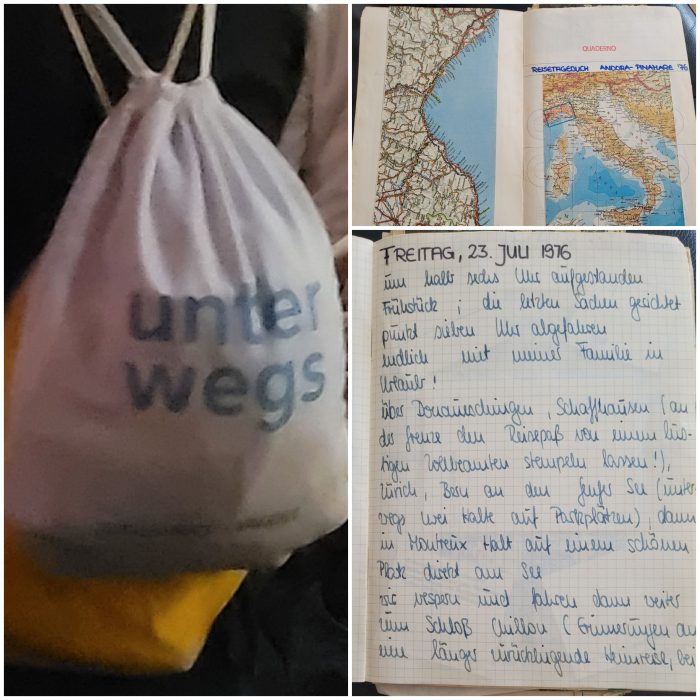 unter
wegs
QUADERNO
REISETAGEBUCH ANDORA-PINAMARE '76
FREITAG, 23. JULI 1976
um halb sechs Uhr aufgestanden
Frühstück ; die letzten Sachen gerichtet
punkt sieben Uhr abgefahren
endlich mit meiner Familie in
Urlaub!
über Donaueschingen, Schaffhausen (an
der Grenze den Reisepaß von einem lus-
tigen Zollbeamten stempeln lassen!),
Zürich, Bern an den Genfer See (unter-
wegs zwei Halte auf Parkplätzen), dann
in Montreux Halt auf einem schönen
Platz direkt am See
wir vespern und fahren dann weiter
zum Schloß Chillon (Erinnerungen an
eine länger zurückliegende Heimreise, bei